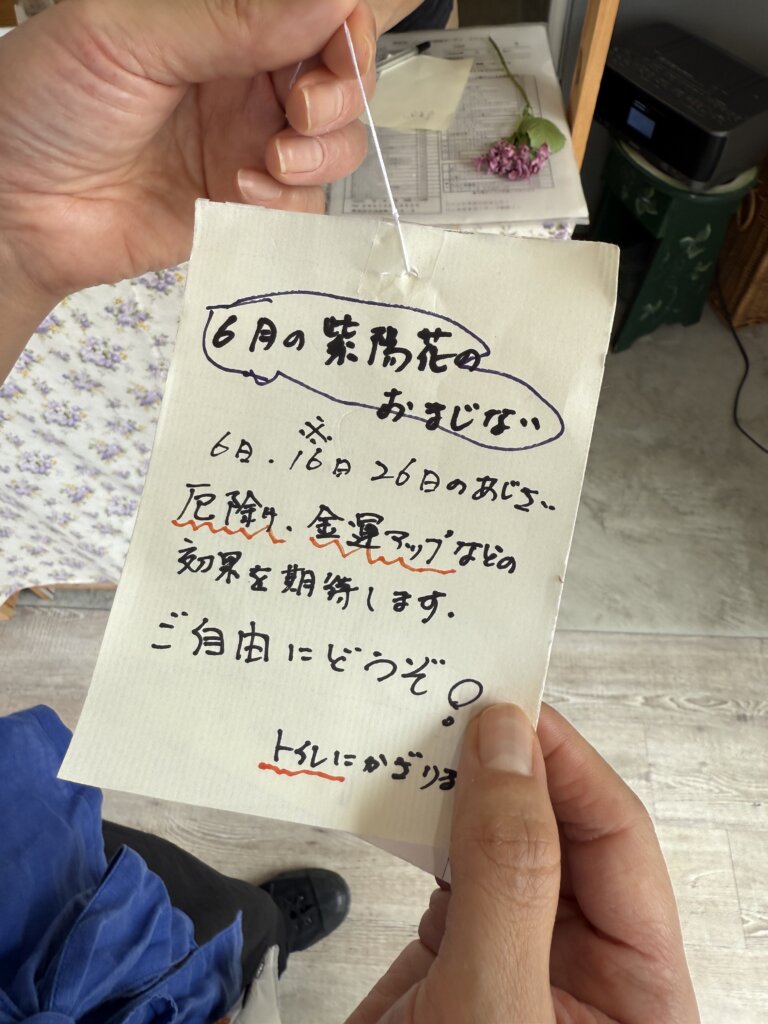 6月の紫陽花の
おまじない
※
6日.16日 26日のあじさい
厄除け、金運アップなどの
効果を期待します.
ご自由にどうぞ!
トイレにかざりま